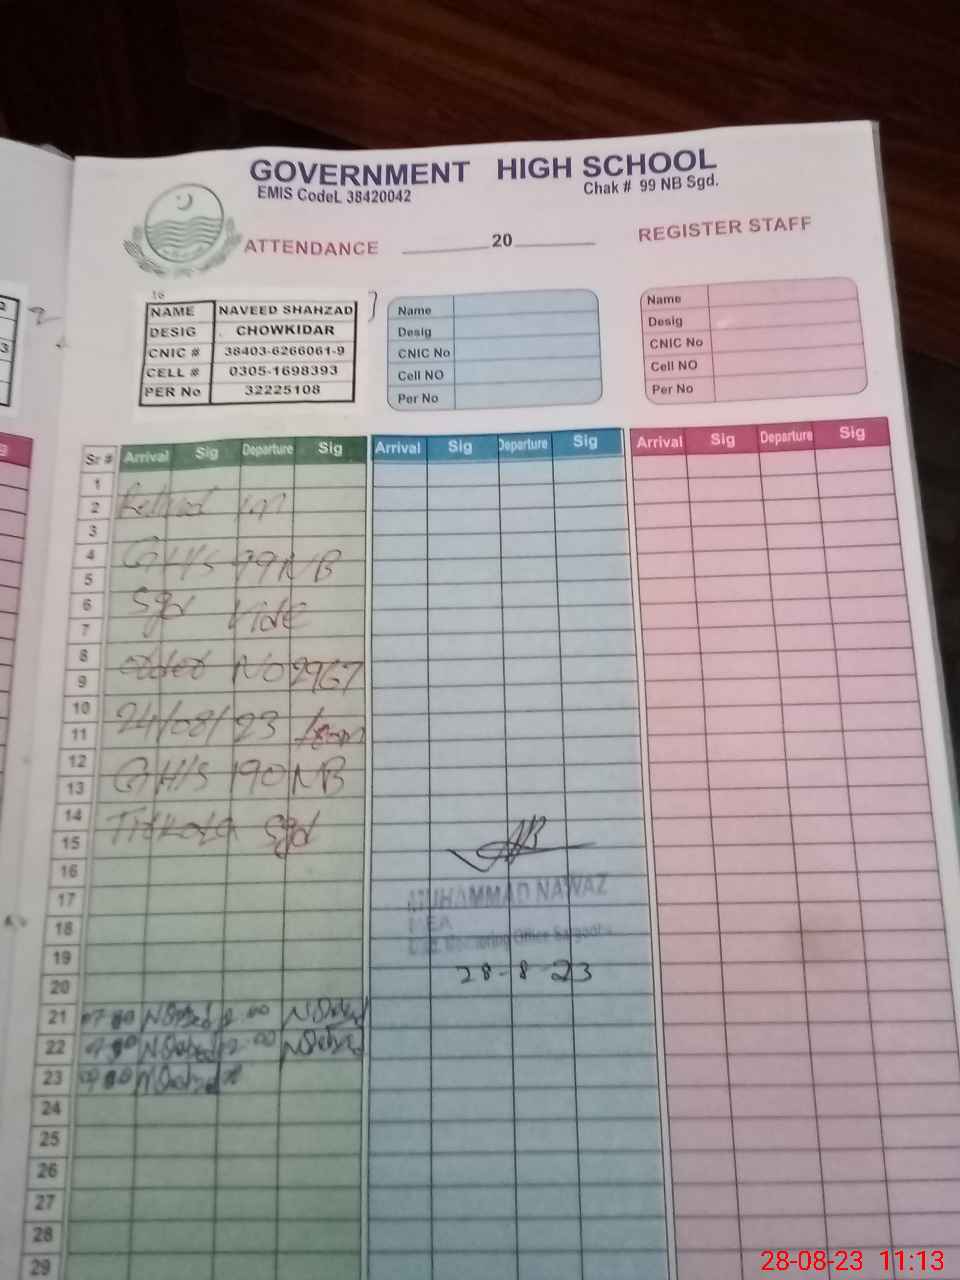 GOVERNMENT HIGH SCHOOL
EMIS CodeL 38420042
Chak # 99 NB Sgd.
ATTENDANCE ______20______ REGISTER STAFF
16
NAME NAVEED SHAHZAD
DESIG CHOWKIDAR
CNIC # 38403-6266061-9
CELL # 0305-1698393
PER No 32225108
Name
Desig
CNIC No
Cell NO
Per No
Name
Desig
CNIC No
Cell NO
Per No
Sr # Arrival Sig Departure Sig Arrival Sig Departure Sig Arrival Sig Departure Sig
1
2
3
4 GHS 99 NB
5
6 Sgd Vide
7
8
9 order No 2967
10
11 24/08/23 from
12
13 GHS 190 NB
14
15 Sgd
16
17
18
19
20
MUHAMMAD NAWAZ
MEA
Monitoring Office Sargodha
28-8-23
21
22
23
24
25
26
27
28
29
28-08-23 11:13